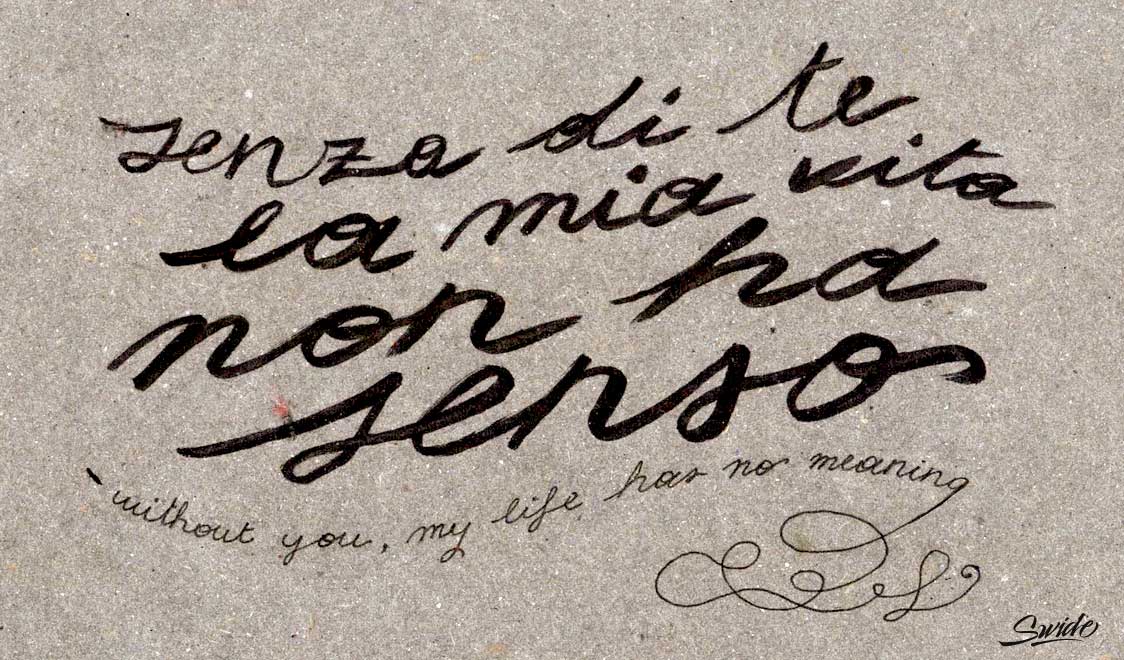 senza di te
la mia vita
non ha
senso
without you, my life has no meaning
Swide